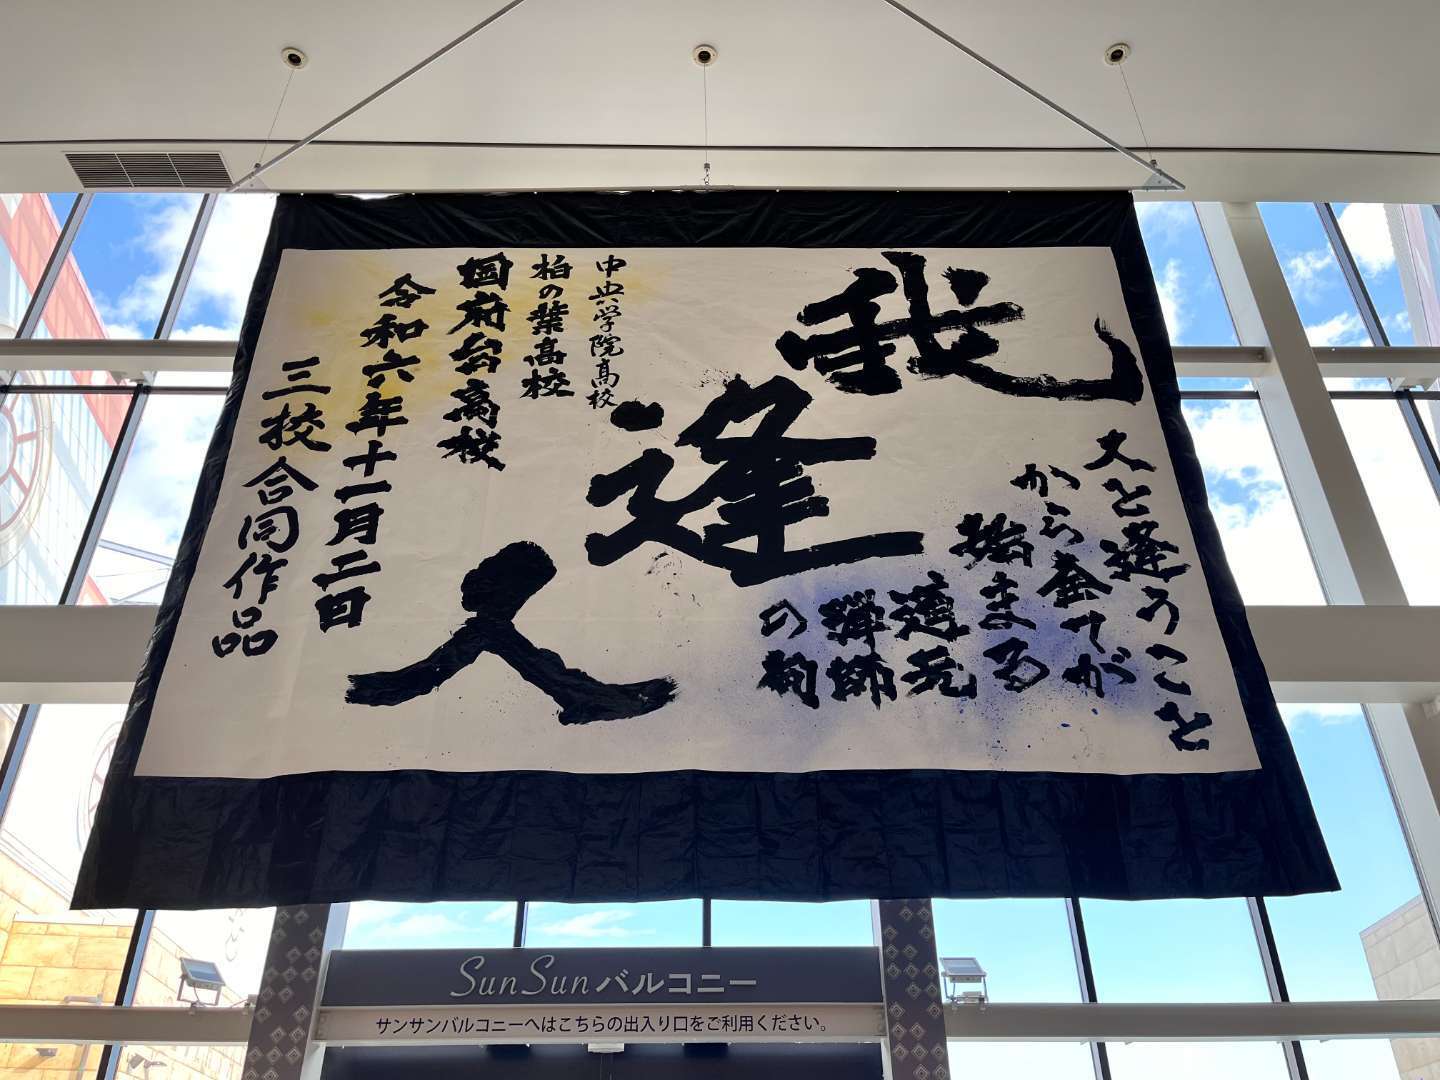 我逢人
人と逢うこと
から全てが
始まる
道元
禅師
の詞
中央学院高校
柏の葉高校
国府台高校
令和六年十一月二日
三校合同作品
SunSunバルコニー
サンサンバルコニーへはこちらの出入り口をご利用ください。